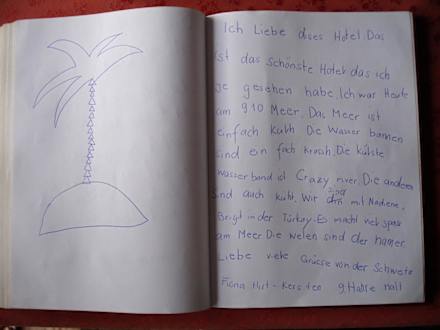 Ich Liebe dises Hotel. Das
ist das schönste Hotel das ich
je gesehen habe. Ich war Heute
am 910 Meer. Das Meer ist
einfach kuhl. Die Wasser bannen
sind ein fach krasih. Die külste
wasser band ist Crazy river. Die anderen
sind auch kuhl. Wir sind mit Nachene.
Birgit in der Türkey. Es macht viel spass
am Meer. Die welen sind der hamer.
Liebe viele Grüsse von der Schweiz
Fiona Hirt - Kersten 9. Halbe